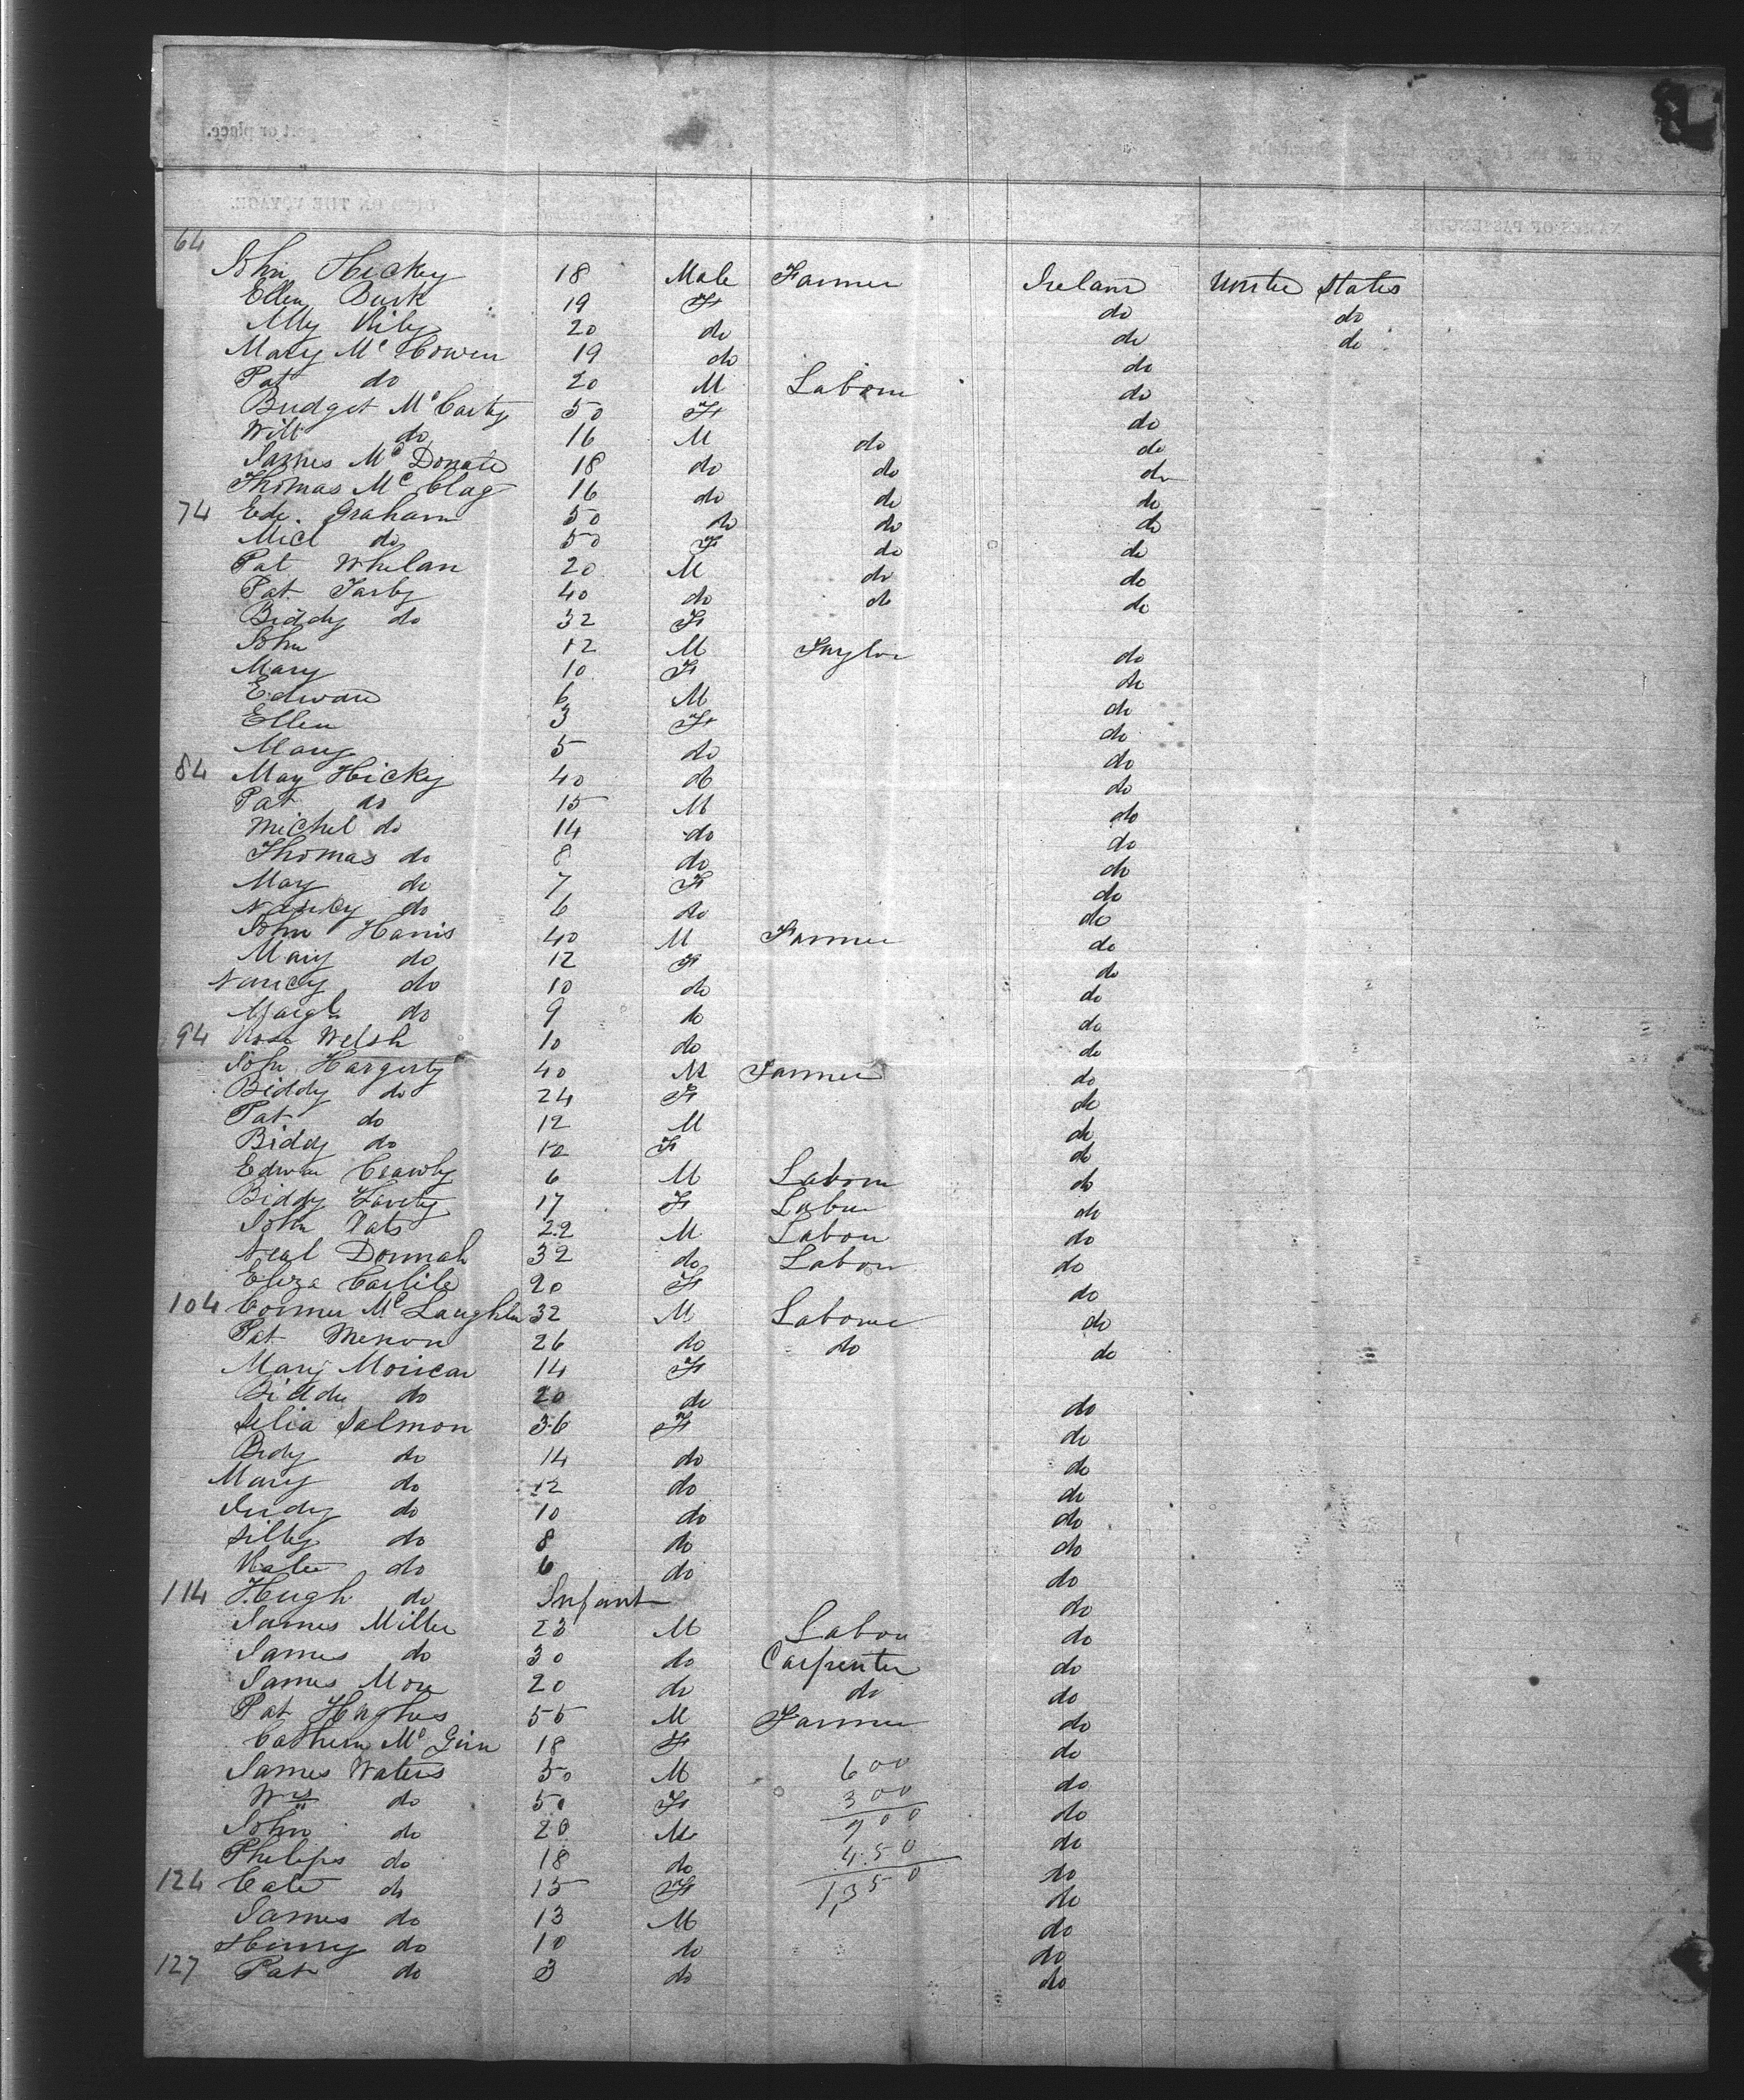 64
John Hickey 18 Male Farmer Ireland United States
Ellen Burk 19 F do do
Ally Rily 20 do do do
Mary Mc Gowen 19 do do
Pat do 20 M Labour do
Bridget McCarty 50 F do
Will do 16 M do do
James Mc Donald 18 do do do
Thomas Mc Clag 16 do do do
74 Ed. Graham 50 do do do
Micl do 50 F do do
Pat Whelan 20 M do do
Pat Farby 40 do do do
Biddy do 32 F
John 12 M Taylor do
Mary 10 F do
Edward 6 M do
Ellen 3 F do
Mary 5 do do
84 May Hicky 40 do do
Pat do 15 M do
Michel do 14 do do
Thomas do 8 do do
May do 7 F do
Nancy do 6 do do
John Harris 40 M Farmer do
Mary do 12 F do
Nancy do 10 do do
Margt do 9 do do
94 Rose Welsh 10 do do
John Hargerty 40 M Farmer do
Biddy do 24 F do
Pat do 12 M do
Biddy do 12 F do
Edwar Crawly 6 M Labour do
Biddy Lavety 17 F Labur do
John Vats 22 M Labou do
Neal Donnah 32 do Labou do
Eliza Carlile 20 F do
104 Connor Mc Laughlin 32 M Labourer do
Pat Menon 26 do do do
Mary Morican 14 F
Biddy do 20 do do
Selia Salmon 36 F do
Bidy do 14 do do
Mary do 12 do do
Judy do 10 do do
Silly do 8 do do
Kate do 6 do do
114 Hugh do Infant do
James Miller 23 M Labou do
James do 30 do Carpenter do
James More 20 do do do
Pat Hughes 55 M Farmer do
Cathern Mc Girn 18 F do
James Waters 50 M 600 do
do 50 F 300 do
John do 20 M 900 do
Philips do 18 do 450 do
124 Cate do 15 F 1,350 do
James do 13 M do
Henry do 10 do do
127 Pat do 3 do do